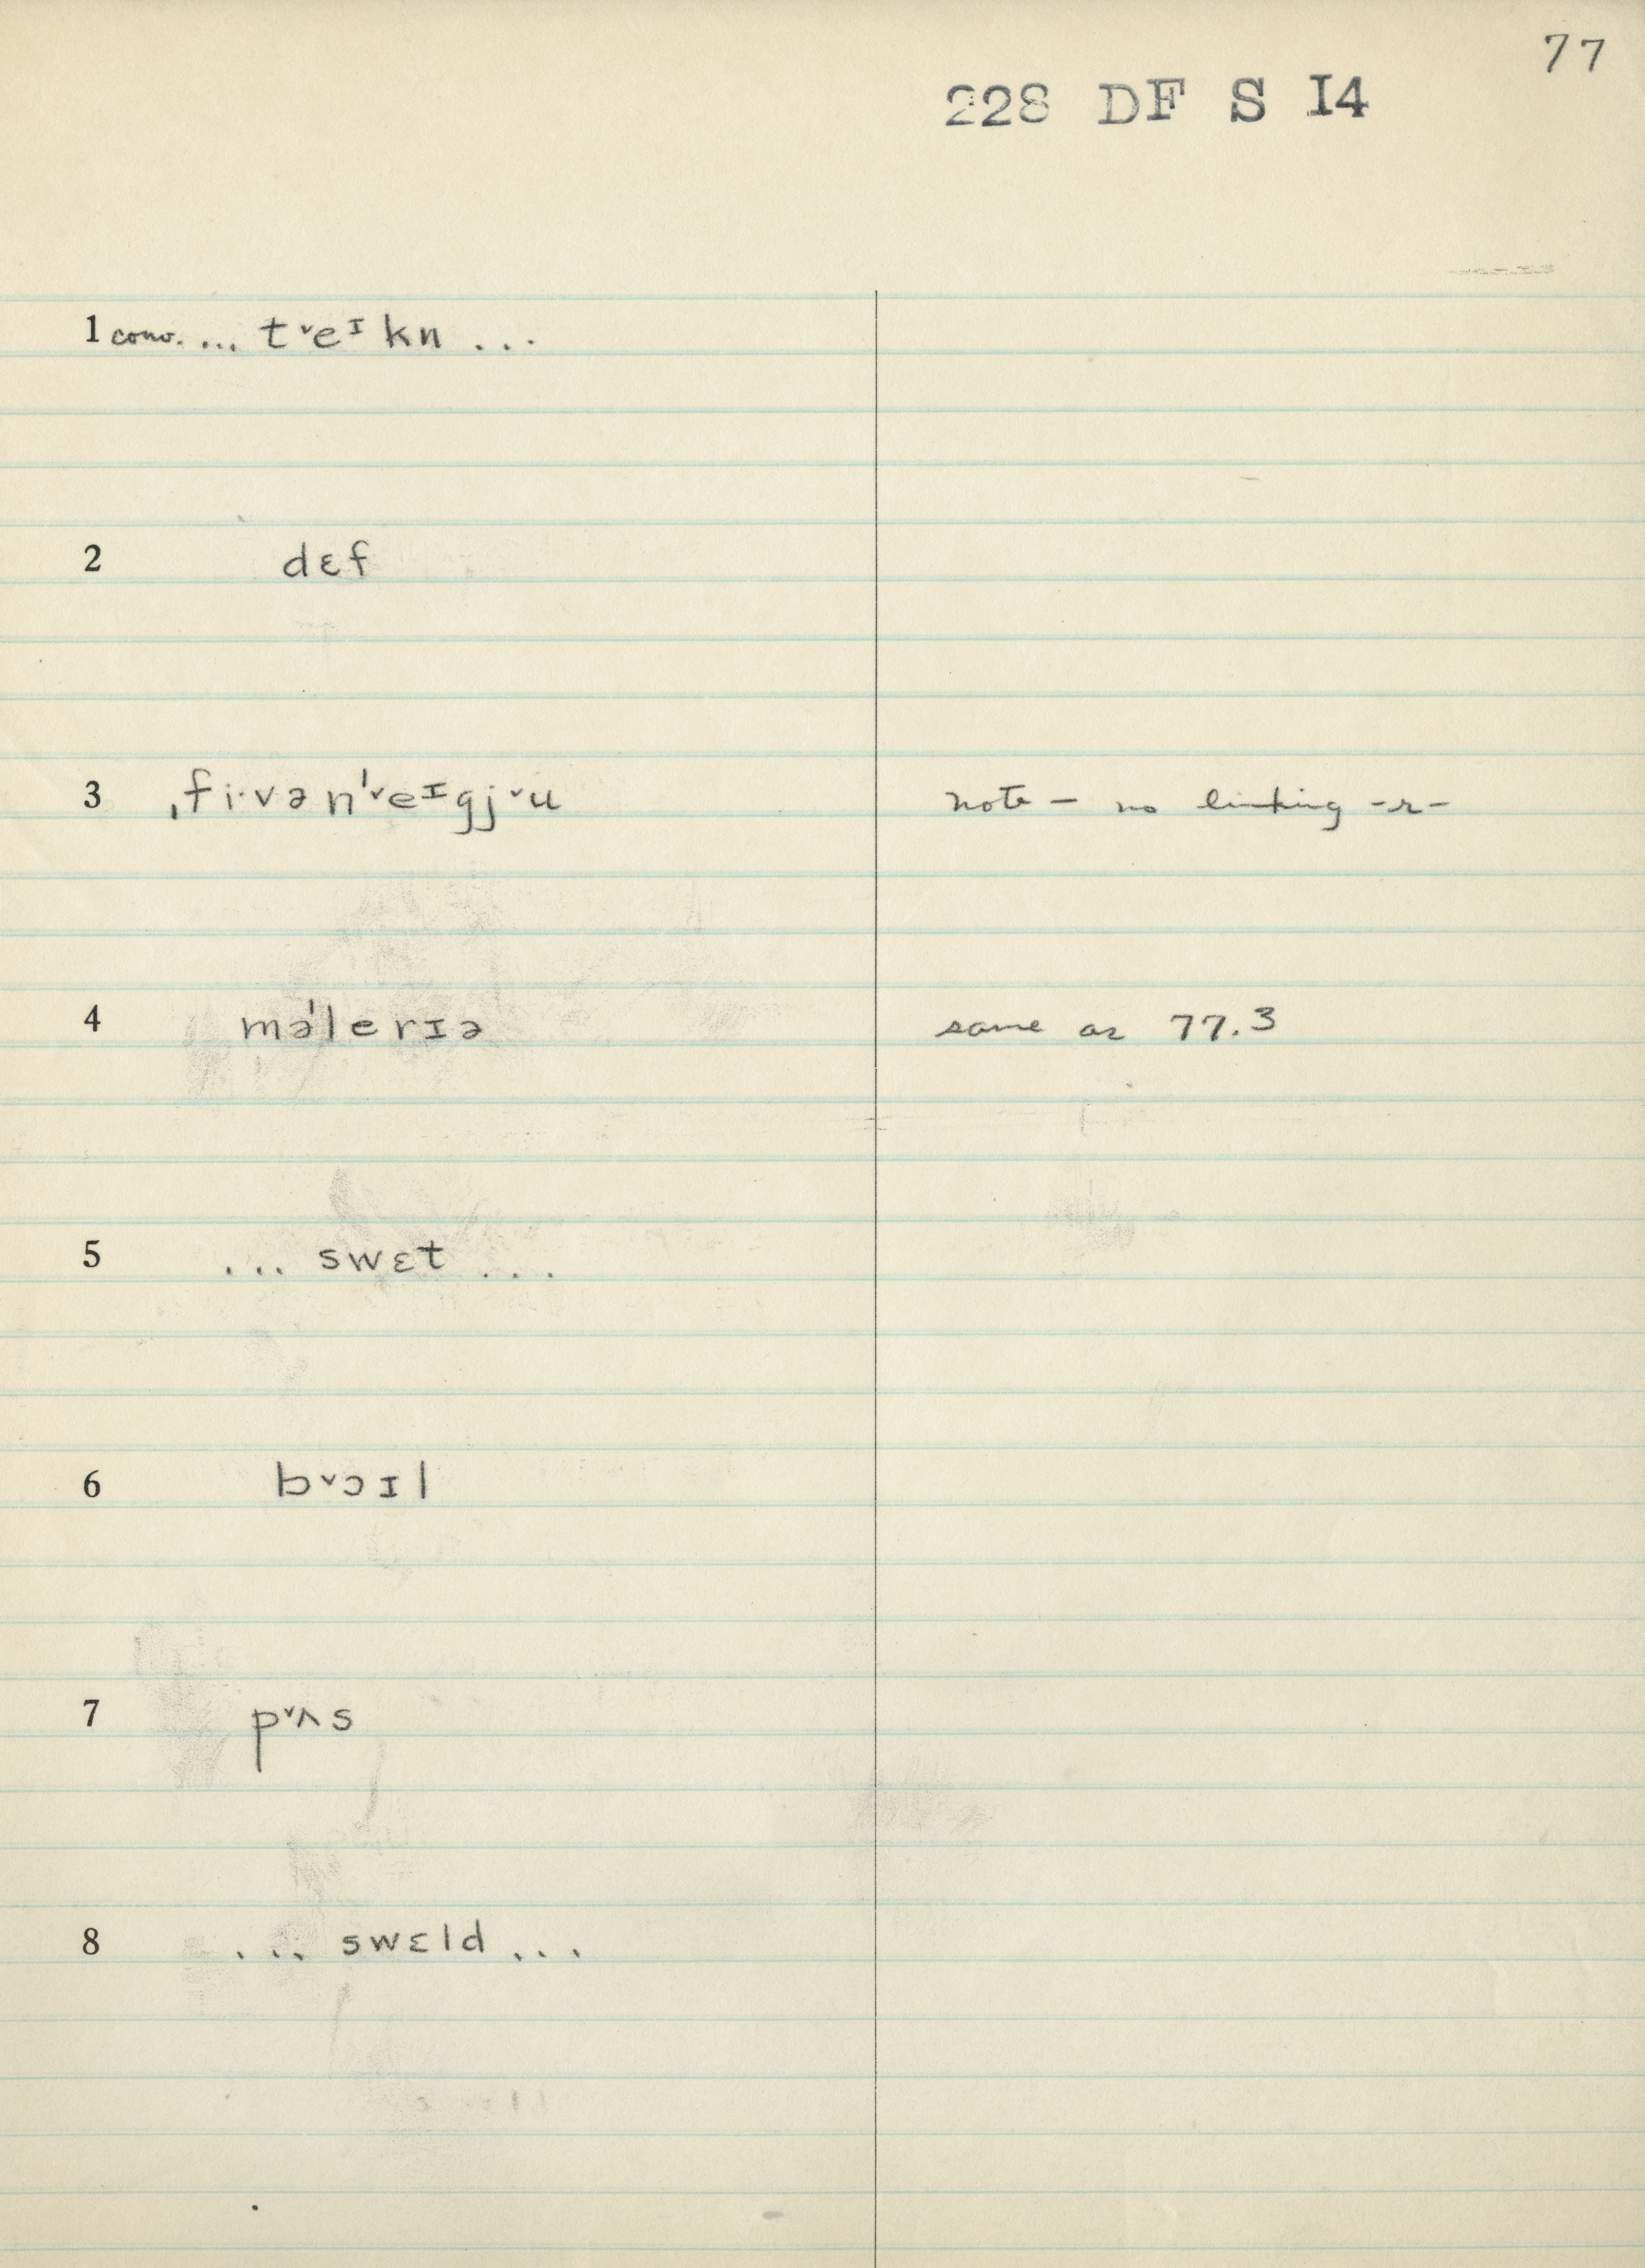 77
228 DF S I4
1 conv. ... tˇeᶦkn ...
2 dɛf
3 ˌfi·vənˈˇeᶦgjˇu note — no linking -r-
4 məˈlerɪə same as 77.3
5 ... swɛt ...
6 bˇɔɪl
7 pˇʌs
8 ... swɛld ...